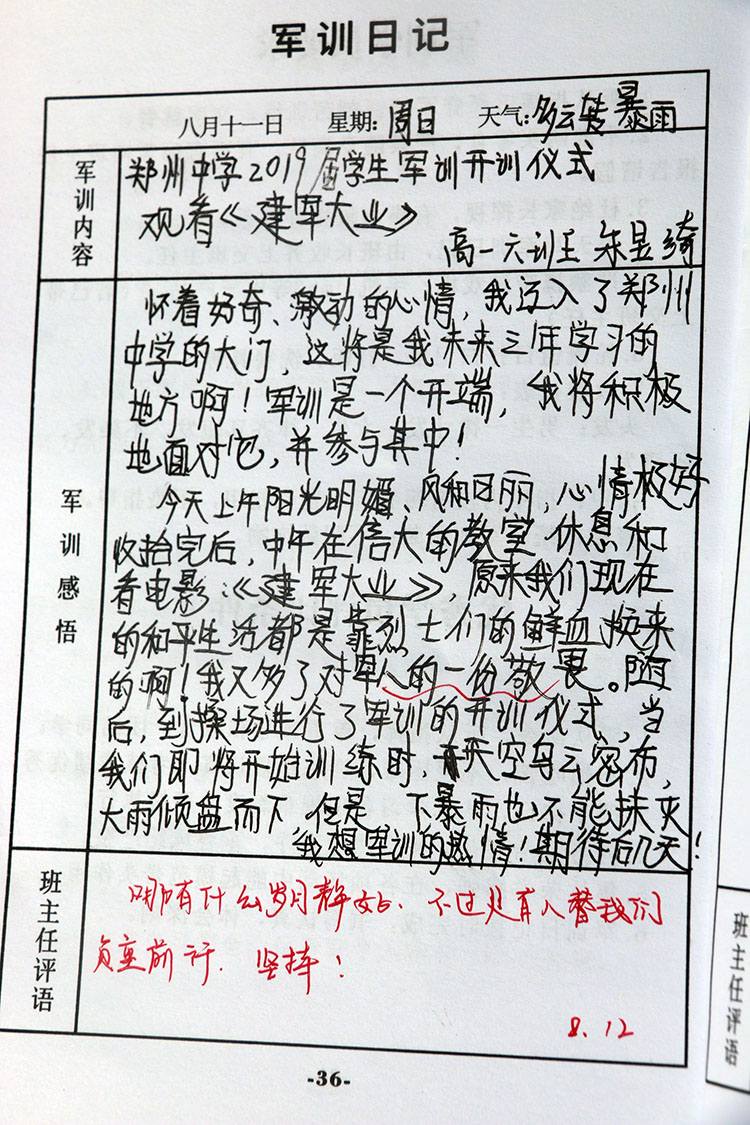 军训日记
八月十一日 星期:周日 天气:多云转暴雨
军训内容
郑州中学2019届学生军训开训仪式
观看《建军大业》
高一六训王朱昱绮
军训感悟
怀着好奇、激动的心情,我迈入了郑州
中学的大门,这将是我未来三年学习的
地方啊!军训是一个开端,我将积极
地面对它,并参与其中!
今天上午阳光明媚、风和日丽,心情极好
收拾完后,中午在偌大的教室休息和
看电影:《建军大业》,原来我们现在
的和平生活都是靠烈士们的鲜血换来
的啊!我又多了对军人的一份敬畏。随
后,到操场进行了军训的开训仪式,当
我们即将开始训练时,天空乌云密布,
大雨倾盘而下 但是 下暴雨也不能抹灭
我想军训的感情!期待后几天!
班主任评语
哪有什么岁月静好.不过是有人替我们
负重前行.坚持!
8.12
-36-
班主任评语